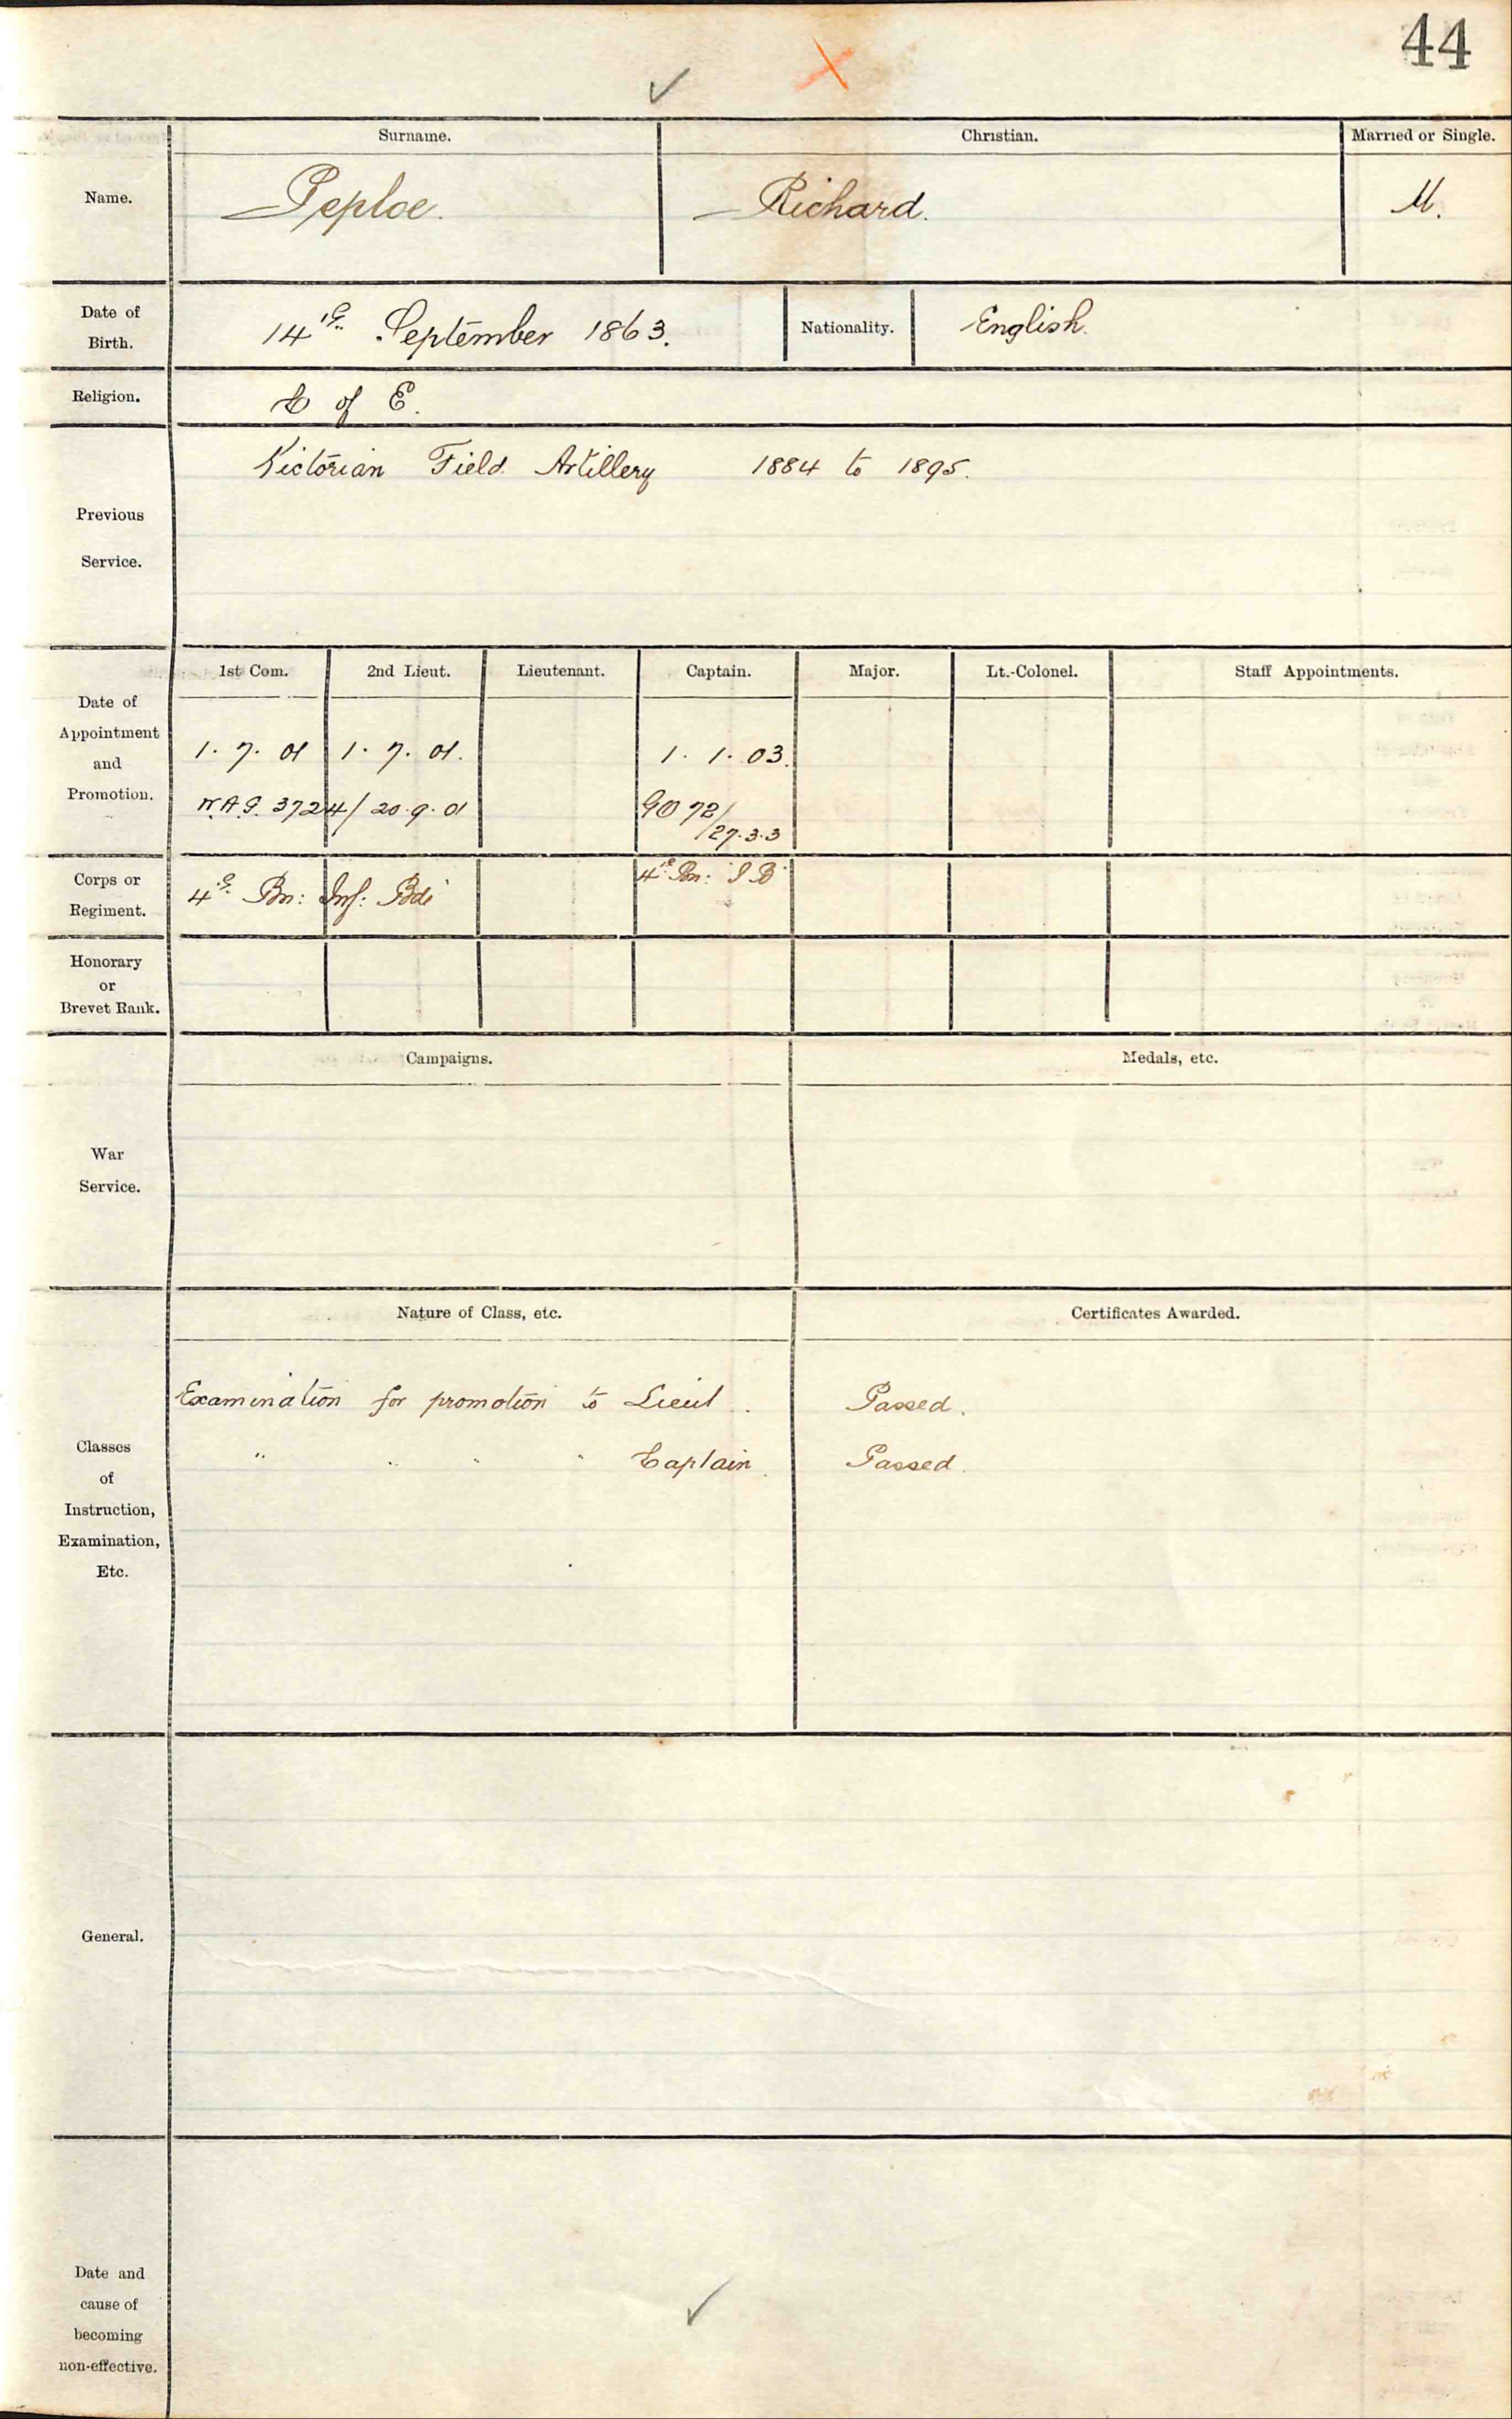 44
Surname. Christian. Married or Single.
Name. Peploe. Richard. M.
Date of Birth. 14th September 1863. Nationality. English.
Religion. C of E.
Previous Service. Victorian Field Artillery 1884 to 1895.
1st Com. 2nd Lieut. Lieutenant. Captain. Major. Lt.-Colonel. Staff Appointments.
Date of
Appointment
and
Promotion.
1. 7. 01 1. 7. 01. 1. 1. 03.
W.A.G. 3724/20.9.01 GO 72/27.3.3
Corps or
Regiment.
4th Bn: Inf: Bde 4th Bn: I B
Honorary
or
Brevet Rank.
Campaigns. Medals, etc.
War
Service.
Nature of Class, etc. Certificates Awarded.
Examination for promotion to Lieut. Passed.
" " " " Captain. Passed.
Classes
of
Instruction,
Examination,
Etc.
General.
Date and
cause of
becoming
non-effective.